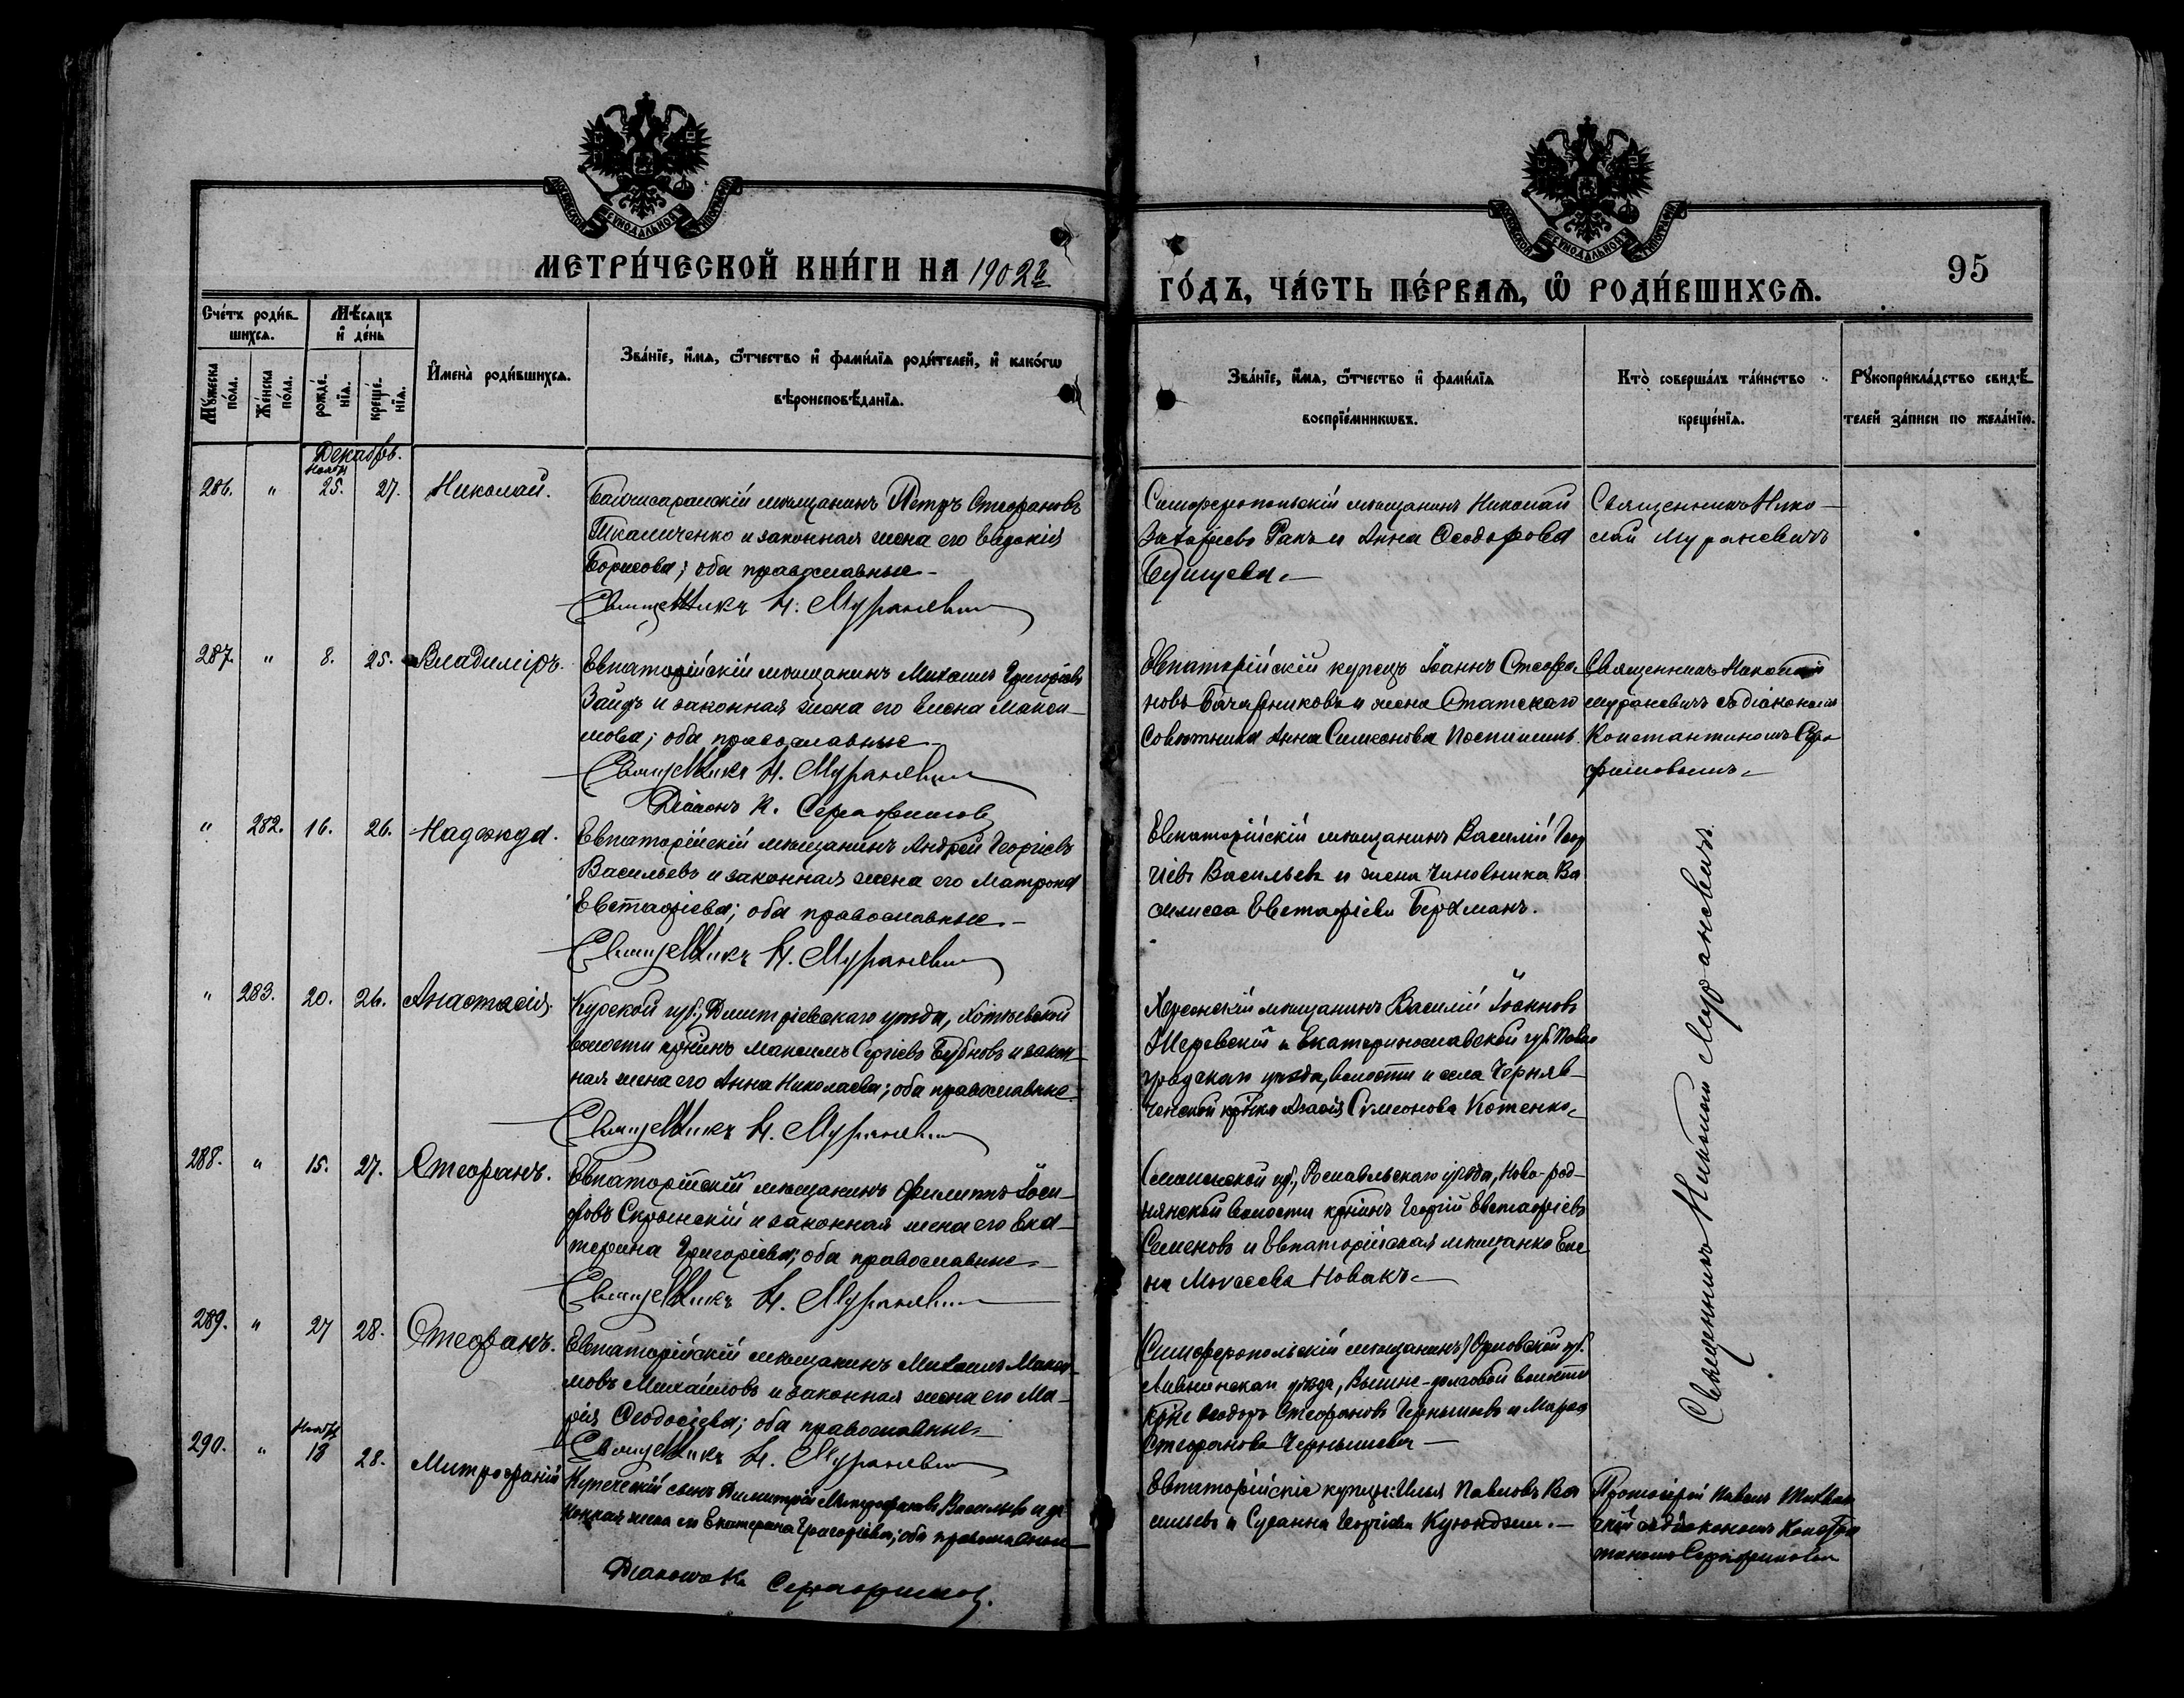 МЕТРИ́ЧЕСКОЙ КНИ́ГИ НА 1902 г.
ГО́ДЪ, ЧА́СТЬ ПЕ́РВАЯ, Ѽ РОДИ́ВШИХСЯ.
95
Сче́тъ роди́в-
шихся.
Мѣ́сяцъ
и҆ де́нь
Мꙋ́жеска по́ла.
Же́нска по́ла.
рожде́нїя.
креще́нїя.
И҆мена̀ роди́вшихся.
Зва́нїе, и҆́мя, ѻ҆́тчество и҆ фами́лїя роди́телей, и҆ како́гѡ
вѣроисповѣ́данїя.
Зва́нїе, и҆́мя, ѻ҆́тчество и҆ фами́лїя
воспрїе́мникѡвъ.
Кто̀ соверша́лъ та́инство
креще́нїя.
Рꙋкоприкла́дство свидѣ́-
телей за́писи по жела́нїю.
Декабрь.
Ноябр
286. " 25. 27. Николай.
Бахчисарайскій мѣщанинъ Петръ Стефановъ
Ткаличенко и законная жена его Евдокія
Борисова; оба православные
Священникъ Н. Мураневич
Симферопольскій мѣщанинъ Николай
Захаріевъ Ракъ и Анна Ѳеодорова
Священникъ Нико-
лай Мураневичъ
287. " 8. 25. Владиміръ.
Евпаторійскій мѣщанинъ Михаилъ Григорьевъ
и законная жена его Елена Макси-
мова; оба православные
Священникъ Н. Мураневич
Діаконъ К. Серафимовъ
Евпаторійскій купецъ Іоаннъ Стефа-
новъ и жена Статскаго
Совѣтника Анна Симеонова
Священникъ Николай
Мураневичъ съ діакономъ
Константиномъ Сера-
фимовымъ
" 282. 16. 26. Надежда.
Евпаторійскій мѣщанинъ Андрей Георгіевъ
Васильевъ и законная жена его Матрона
Евстафіева; оба православные
Священникъ Н. Мураневич
Евпаторійскій мѣщанинъ Василій Геор
гіевъ Васильевъ и жена чиновника Ва
силисса Евстафіева Бергманъ.
Священникъ Николай Мураневичъ
" 283. 20. 26. Анастасія
Курской губ., Димитріевскаго уѣзда,
волости кр-нинъ Максимъ Сергіевъ Бубновъ и закон-
ная жена его Анна Николаева; оба православные
Священникъ Н. Мураневич
Херсонскій мѣщанинъ Василій Іоанновъ
и Екатеринославской губ. Павло
градскаго уѣзда, волости и села Черняв-
Симеонова Котенко
288. " 15. 27. Стефанъ.
Евпаторійскій мѣщанинъ Филиппъ Іоси-
фовъ Скрынскій и законная жена его Ека-
терина Григоріева; оба православные
Священникъ Н. Мураневич
Смоленской губ., Рославльскаго уѣзда, Ново-род-
нянской волости кр-нинъ Георгій Евстафіевъ
Семеновъ и Евпаторійская мѣщанка Еле
на Моисеева Новакъ
289. " 27 28. Стефанъ.
Евпаторійскій мѣщанинъ Михаилъ Макси-
мовъ Михайловъ и законная жена его Ма-
рія Ѳеодосіева; оба православные
Священникъ Н. Мураневич
Симферопольскій мѣщанинъ Орловской губ.
Ливенскаго уѣзда, волости
Ѳеодоръ Стефановъ Чернышевъ и Марѳа
Стефанова Чернышева
Ноябр
290. " 18 28. Митрофаній
Купеческій сынъ Димитрій Митрофановъ Васильевъ и за-
конная жена его Екатерина Григоріева; оба православные
Діаконъ К. Серафимовъ
Евпаторійскіе купцы: Илья Павловъ Ва
сильевъ и Сусанна Георгіева
Протоіерей Павелъ
съ діакономъ Констан
тиномъ Серафимовым